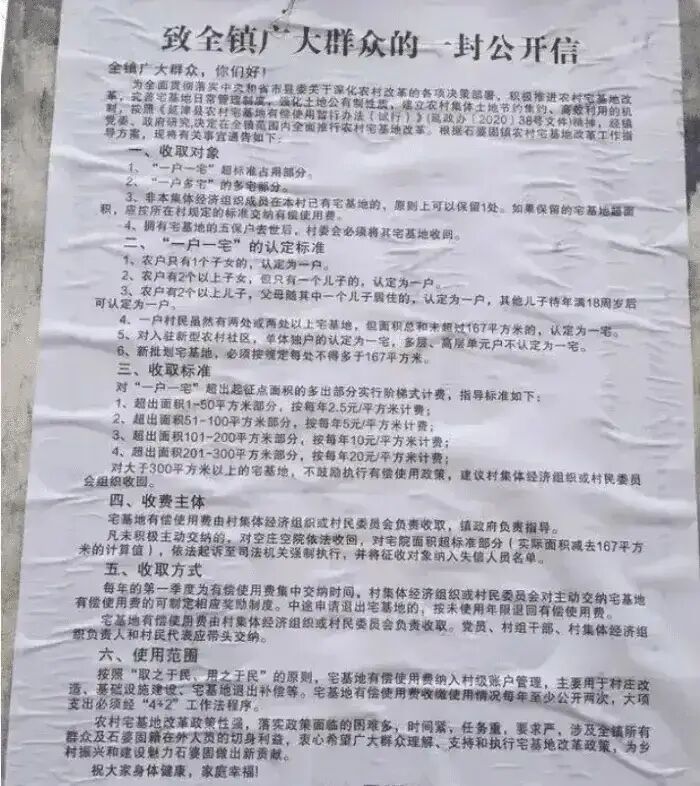 致全镇广大群众的一封公开信
全镇广大群众，你们好！
为全面贯彻落实中央和省市县委关于深化农村改革的各项决策部署，积极推进农村宅基地改
革，完善宅基地日常管理制度，强化土地公有制性质，建立农村集体土地节约集约、高效利用的机
制，按照《延津县农村宅基地有偿使用暂行办法（试行）》（延政办〔2020〕38号文件)精神，经镇
党委、政府研究决定在全镇范围内全面推行农村宅基地改革。根据石婆固镇农村宅基地改革工作指
导方案，现将有关事宜通告如下：
一、收取对象
1、“一户一宅”超标准占用部分。
2、“一户多宅”的多宅部分。
3、非本集体经济组织成员在本村已有宅基地的，原则上可以保留1处。如果保留的宅基地超面
积，应按所在村规定的标准交纳有偿使用费。
4、拥有宅基地的五保户去世后，村委会必须将其宅基地收回。
二、“一户一宅”的认定标准
1、农户只有1个子女的，认定为一户。
2、农户有2个以上子女，但只有一个儿子的，认定为一户。
3、农户有2个以上儿子，父母随其中一个儿子居住的，认定为一户，其他儿子待年满18周岁后
可认定为一户。
4、一户村民虽然有两处或两处以上宅基地，但面积总和未超过167平方米的，认定为一宅。
5、对入驻新型农村社区，单体独户的认定为一宅，多层、高层单元户不认定为一宅。
6、新批划宅基地，必须按规定每处不得多于167平方米。
三、收取标准
对“一户一宅”超出起征点面积的多出部分实行阶梯式计费，指导标准如下：
1、超出面积1-50平方米部分，按每年2.5元/平方米计费；
2、超出面积51-100平方米部分，按每年5元/平方米计费；
3、超出面积101-200平方米部分，按每年10元/平方米计费；
4、超出面积201-300平方米部分，按每年20元/平方米计费。
对大于300平方米以上的宅基地，不鼓励执行有偿使用政策，建议村集体经济组织或村民委员
会组织收回。
四、收费主体
宅基地有偿使用费由村集体经济组织或村民委员会负责收取，镇政府负责指导。
凡未积极主动交纳的，对空庄空院依法收回，对宅院面积超标准部分（实际面积减去167平方
米的计算值），依法起诉至司法机关强制执行，并将征收对象纳入失信人员名单。
五、收取方式
每年的第一季度为有偿使用费集中交纳时间，村集体经济组织或村民委员会对主动交纳宅基地
有偿使用费的可制定相应奖励制度。中途申请退出宅基地的，按未使用年限退回有偿使用费。
宅基地有偿使用费由村集体经济组织或村民委员会负责收取。党员、村组干部、村集体经济组
织负责人和村民代表应带头交纳。
六、使用范围
按照“取之于民、用之于民”的原则，宅基地有偿使用费纳入村级账户管理，主要用于村庄改
造、基础设施建设、宅基地退出补偿等。宅基地有偿使用费收缴使用情况每年至少公开两次，大项
支出必须经“4+2”工作法程序。
农村宅基地改革政策性强，落实政策面临的困难多，时间紧，任务重，要求严，涉及全镇所有
群众及石婆固籍在外人员的切身利益，衷心希望广大群众理解、支持和执行宅基地改革政策，为乡
村振兴和建设魅力石婆固做出新贡献。
祝大家身体健康，家庭幸福！